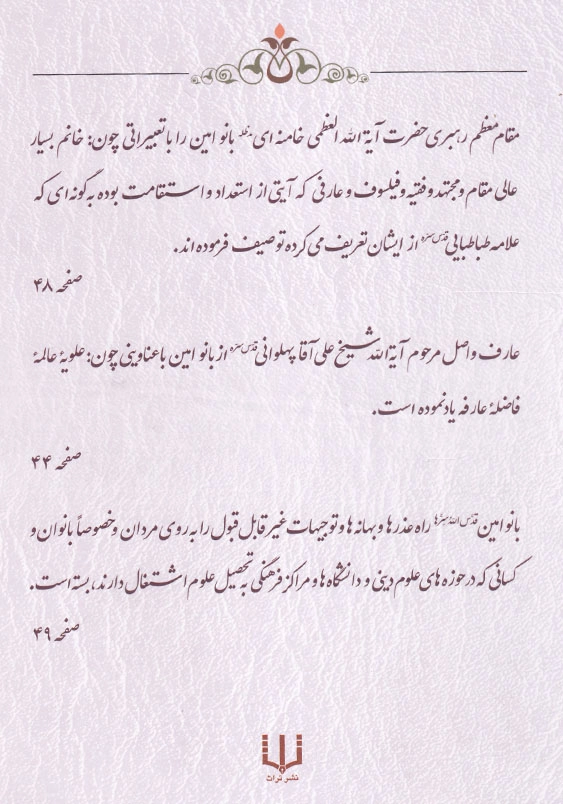 مقام معظم رهبری حضرت آیة الله العظمی خامنه ای مدظله بانو امین را با تعبیراتی چون: خانم بسیار
عالی مقام و مجتهد و فقیه و فیلسوف و عارفی که آیتی از استعداد و استقامت بوده به گونه ای که
علامه طباطبایی قدس سره از ایشان تعریف می کرده توصیف فرموده اند.
صفحه ۴۸
عارف واصل مرحوم آیة الله شیخ علی آقا پهلوانی قدس سره از بانو امین با عناوینی چون: علویۀ عالمۀ
فاضلۀ عارفه یاد نموده است.
صفحه ۴۴
بانو امین قدس الله سرها راه عذرها و بهانه ها و توجیهات غیر قابل قبول را به روی مردان و خصوصاً بانوان و
کسانی که در حوزه های علوم دینی و دانشگاه ها و مراکز فرهنگی به تحصیل علوم اشتغال دارند، بسته است.
صفحه ۴۹
نشر تراث